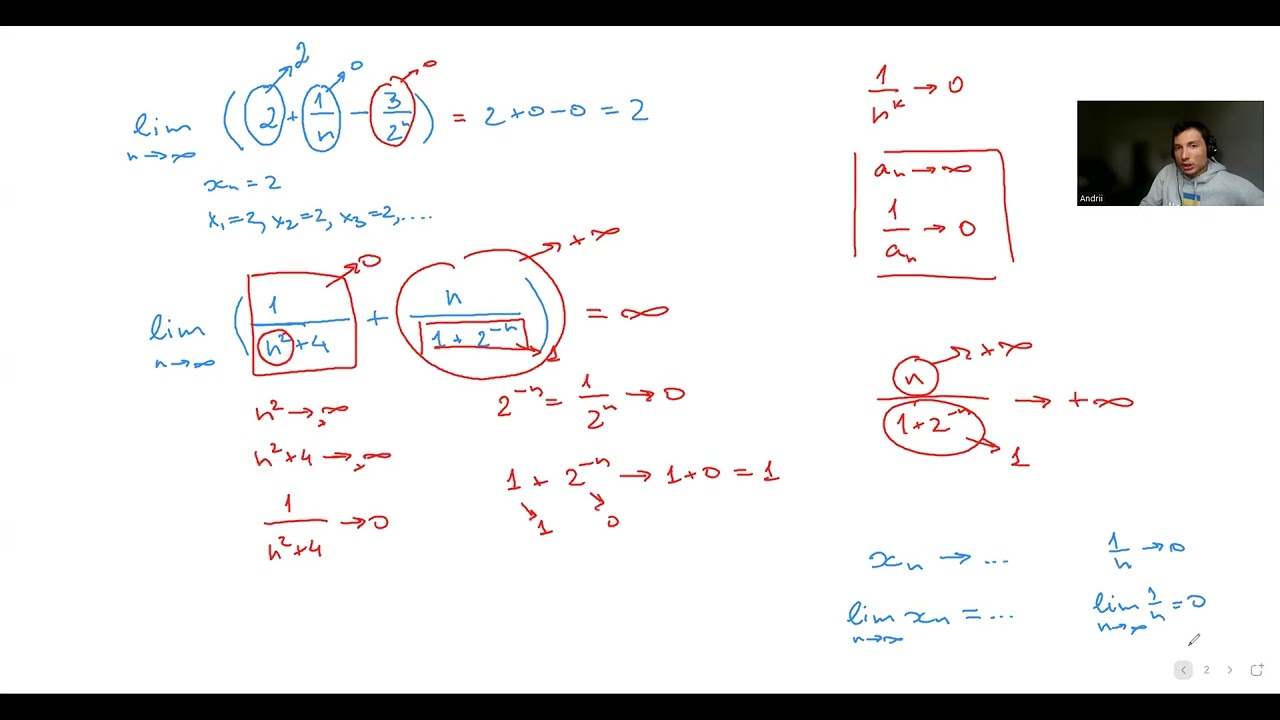 lim n→∞ (2 + 1/n − 3/2ⁿ) = 2+0−0 = 2
2
0
0
xₙ = 2
x₁=2, x₂=2, x₃=2, ....
lim n→∞ (1/(n²+4) + n/(1+2⁻ⁿ)) = ∞
0
+∞
1
n² → ∞
n²+4 → ∞
1/(n²+4) → 0
2⁻ⁿ = 1/2ⁿ → 0
1 + 2⁻ⁿ → 1+0 = 1
1
0
1/nᵏ → 0
aₙ → ∞
1/aₙ → 0
Andrii
n/(1+2⁻ⁿ) → +∞
+∞
1
xₙ → ...
lim n→∞ xₙ = ...
1/n → 0
lim n→∞ 1/n = 0
2